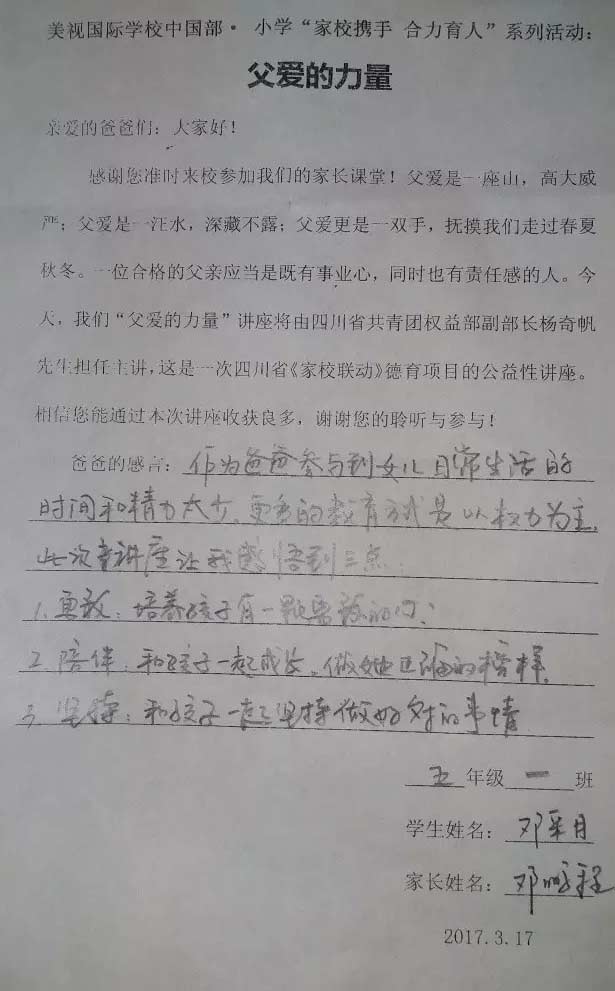 美视国际学校中国部· 小学“家校携手 合力育人”系列活动：
父爱的力量
亲爱的爸爸们：大家好！
感谢您准时来校参加我们的家长课堂！父爱是一座山，高大威
严；父爱是一汪水，深藏不露；父爱更是一双手，抚摸我们走过春夏
秋冬。一位合格的父亲应当是既有事业心，同时也有责任感的人。今
天，我们“父爱的力量”讲座将由四川省共青团权益部副部长杨奇帆
先生担任主讲，这是一次四川省《家校联动》德育项目的公益性讲座。
相信您能通过本次讲座收获良多，谢谢您的聆听与参与！
爸爸的感言：作为爸爸参与到女儿日常生活的
时间和精力太少，更多的教育方式是以权力为主，
此次讲座让我感悟到三点：
1. 勇敢：培养孩子有一颗勇敢的心；
2. 陪伴：和孩子一起成长，做她正确的榜样。
3. 坚持：和孩子一起坚持做好对的事情
五年级一班
学生姓名：邓采月
家长姓名：邓
2017.3.17